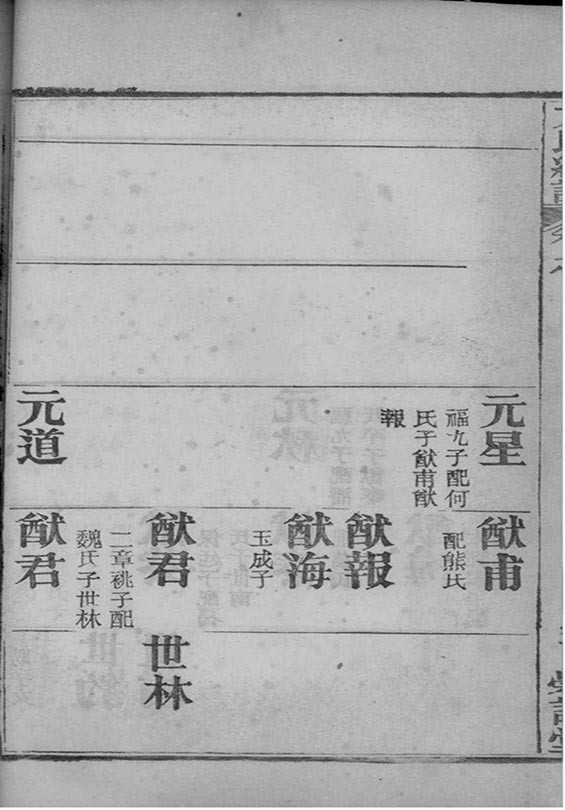 元星
福九子配何
氏子猷甫猷
報
元道
猷甫
配熊氏
猷報
猷海
玉成子
猷君
二章祧子配
魏氏子世林
猷君
世林